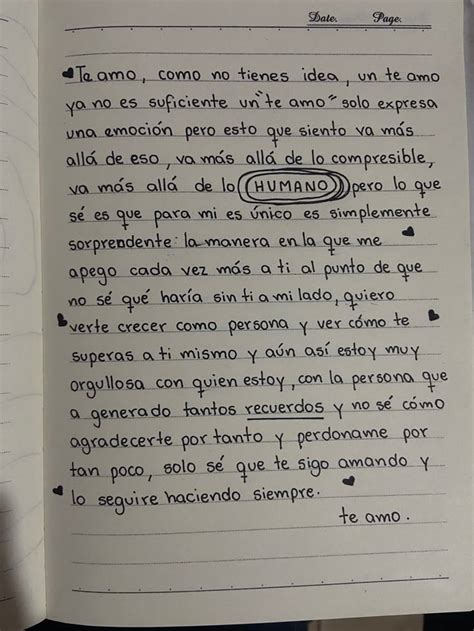 Date. Page.
Te amo, como no tienes idea, un te amo
ya no es suficiente un "te amo" solo expresa
una emoción pero esto que siento va más
allá de eso, va más allá de lo compresible,
va más allá de lo HUMANO pero lo que
sé es que para mi es único es simplemente
sorprendente: la manera en la que me
apego cada vez más a ti al punto de que
no sé qué haría sin ti a mi lado, quiero
verte crecer como persona y ver cómo te
superas a ti mismo y aún así estoy muy
orgullosa con quien estoy, con la persona que
a generado tantos recuerdos y no sé cómo
agradecerte por tanto y perdoname por
tan poco, solo sé que te sigo amando y
lo seguire haciendo siempre.
te amo.